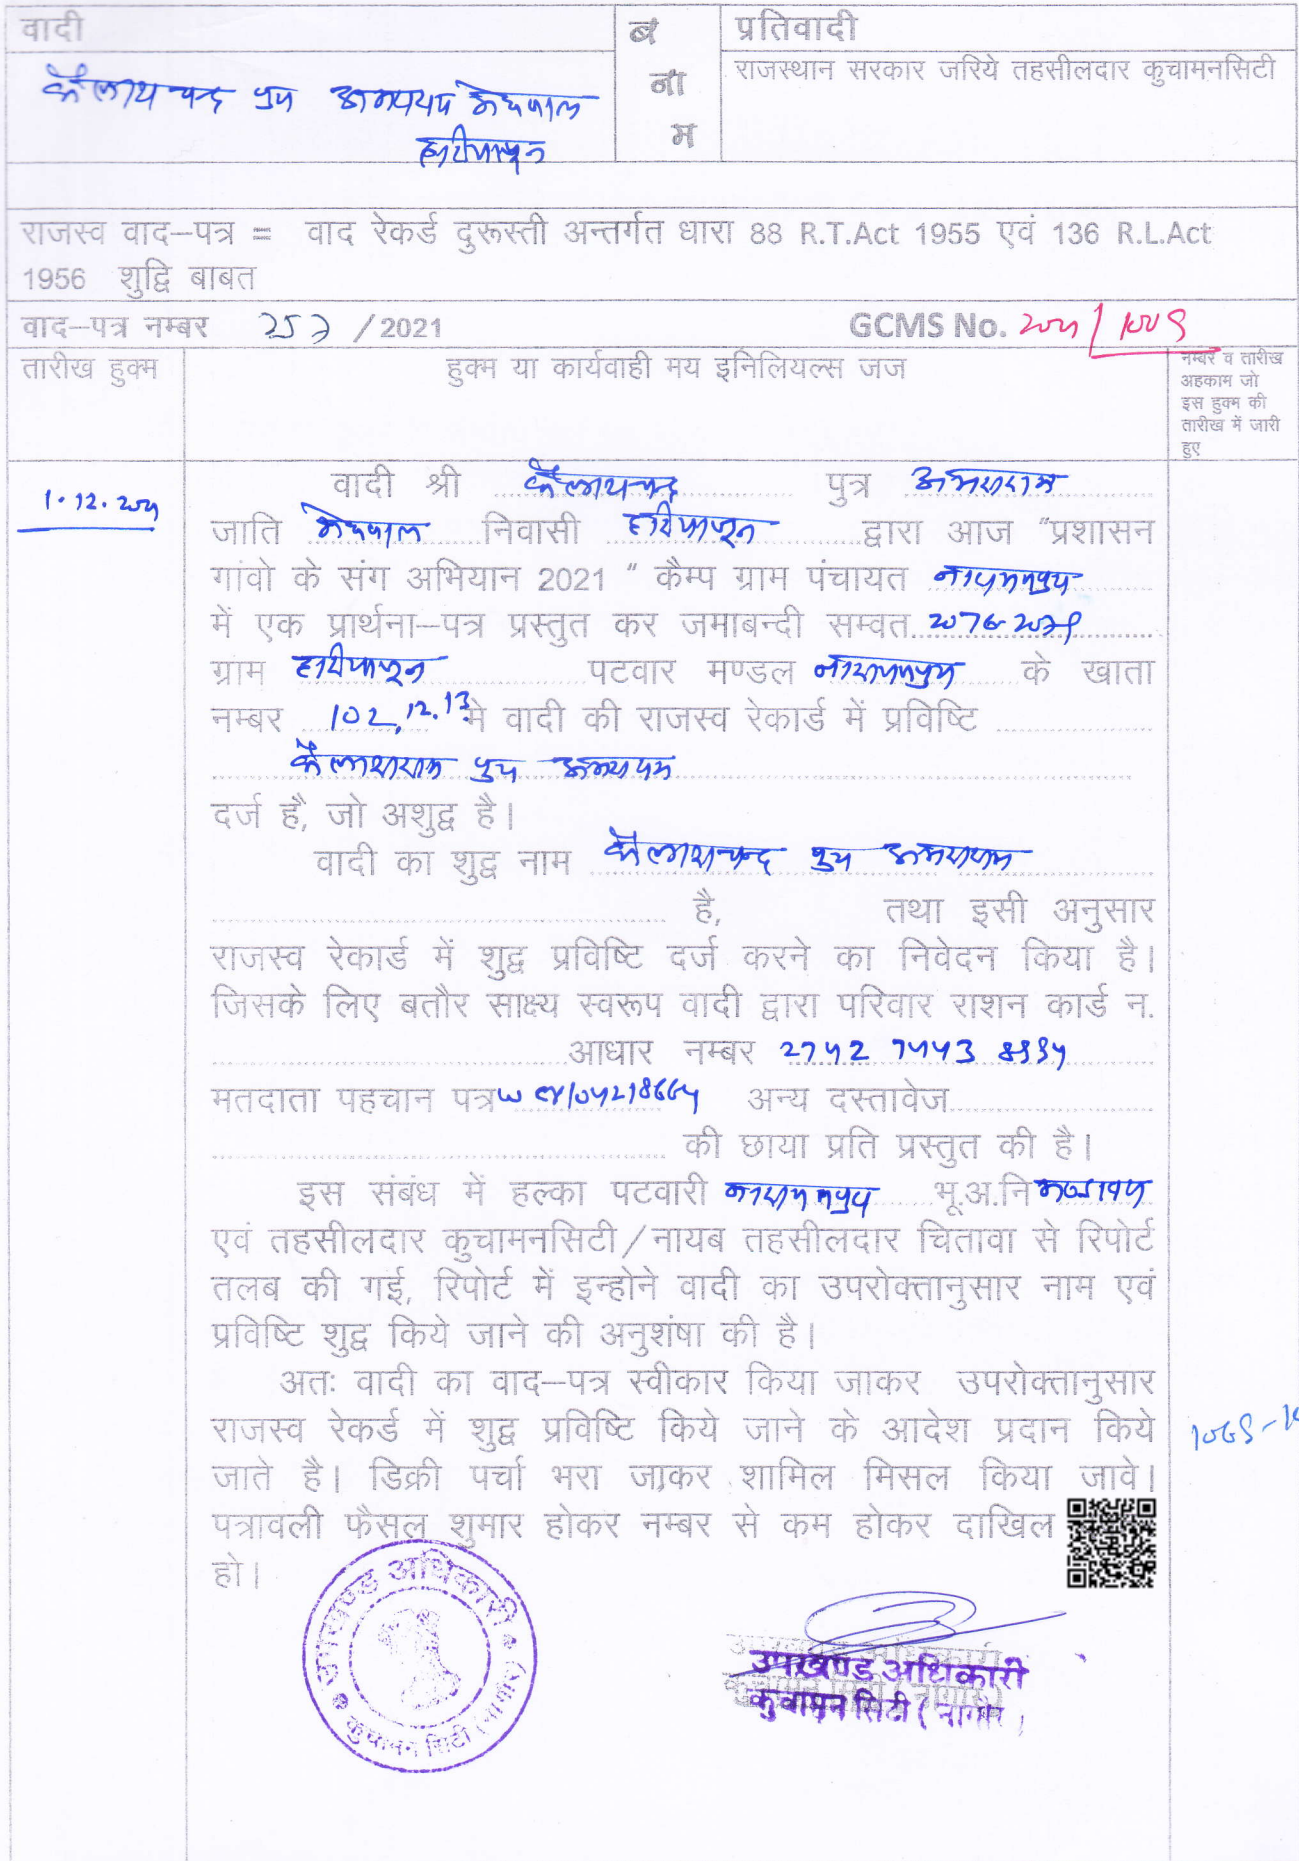 वादी
ब
ना
म
प्रतिवादी
कैलाशचन्द्र पुत्र अमराराम मेघवाल
राजस्थान सरकार जरिये तहसीलदार कुचामनसिटी
राजस्व वाद–पत्र = वाद रेकर्ड दुरूस्ती अन्तर्गत धारा 88 R.T.Act 1955 एवं 136 R.L.Act
1956 शुद्वि बाबत
वाद–पत्र नम्बर / 2021 GCMS No.
तारीख हुक्म
हुक्म या कार्यवाही मय इनिलियल्स जज
नम्बर व तारीख
अहकाम जो
इस हुक्म की
तारीख में जारी
हुए
1.12.2021
वादी श्री कैलाशचन्द्र पुत्र अमराराम
जाति मेघवाल निवासी द्वारा आज "प्रशासन
गांवो के संग अभियान 2021 " कैम्प ग्राम पंचायत नारायणपुरा
में एक प्रार्थना–पत्र प्रस्तुत कर जमाबन्दी सम्वत 2076-2079
ग्राम पटवार मण्डल नारायणपुरा के खाता
नम्बर 102, 12, 13 मे वादी की राजस्व रेकार्ड में प्रविष्टि
कैलाशराम पुत्र अमराराम
दर्ज है, जो अशुद्व है।
वादी का शुद्व नाम कैलाशचन्द्र पुत्र अमराराम
है, तथा इसी अनुसार
राजस्व रेकार्ड में शुद्व प्रविष्टि दर्ज करने का निवेदन किया है।
जिसके लिए बतौर साक्ष्य स्वरूप वादी द्वारा परिवार राशन कार्ड न.
आधार नम्बर
मतदाता पहचान पत्र अन्य दस्तावेज
की छाया प्रति प्रस्तुत की है।
इस संबंध में हल्का पटवारी नारायणपुरा भू.अ.नि
एवं तहसीलदार कुचामनसिटी/नायब तहसीलदार चितावा से रिपोर्ट
तलब की गई, रिपोर्ट में इन्होने वादी का उपरोक्तानुसार नाम एवं
प्रविष्टि शुद्व किये जाने की अनुशंषा की है।
अतः वादी का वाद–पत्र स्वीकार किया जाकर उपरोक्तानुसार
राजस्व रेकर्ड में शुद्व प्रविष्टि किये जाने के आदेश प्रदान किये
जाते है। डिक्री पर्चा भरा जाकर शामिल मिसल किया जावे।
पत्रावली फैसल शुमार होकर नम्बर से कम होकर दाखिल
हो।
उपखण्ड अधिकारी
कुचामन सिटी (नागौर)
उपखण्ड अधिकारी
कुचामन सिटी (नागौर)